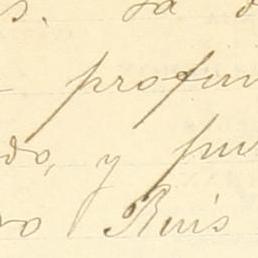 s. Ya
profun
do, y pu
ro Ruis